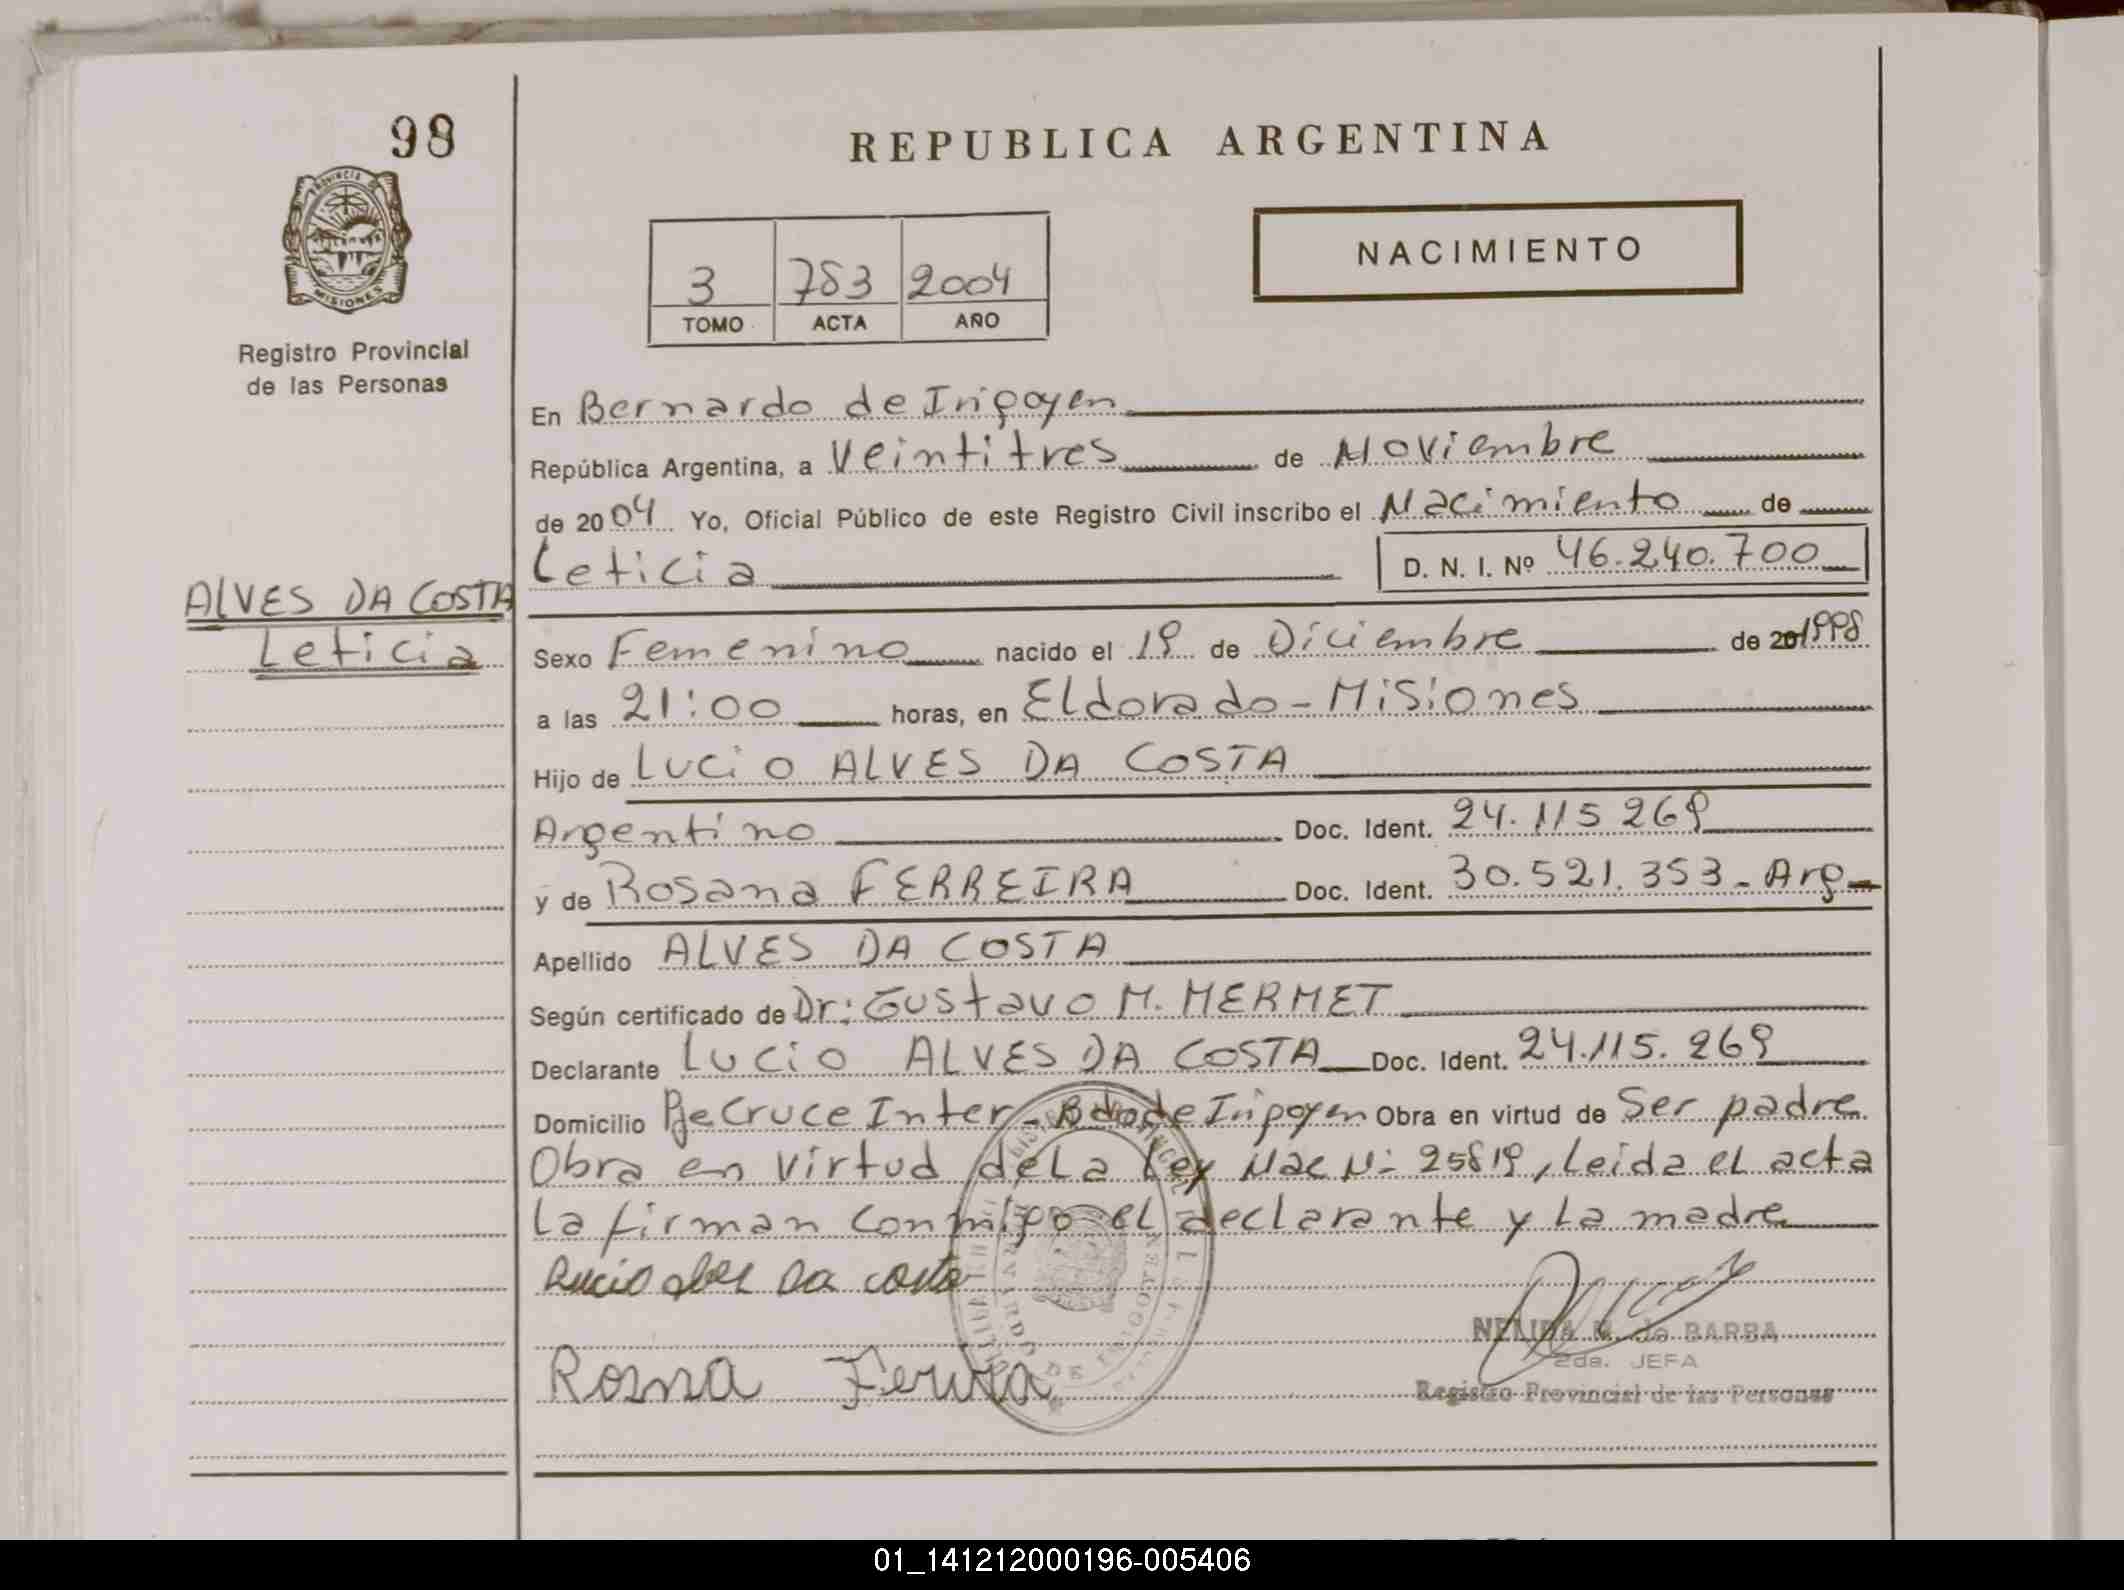 98
REPUBLICA ARGENTINA
PROVINCIA DE
MISIONES
NACIMIENTO
3 783 2004
TOMO ACTA AÑO
Registro Provincial
de las Personas
En Bernardo de Irigoyen
República Argentina, a Veintitres de Noviembre
de 2004 Yo, Oficial Público de este Registro Civil inscribo el Nacimiento de
Leticia D. N. I. Nº 46.240.700
ALVES DA COSTA
Leticia
Sexo Femenino nacido el 19 de Diciembre de 20 1998
a las 21:00 horas, en Eldorado - Misiones
Hijo de Lucio ALVES DA COSTA
Argentino Doc. Ident. 24.115 269
y de Rosana FERREIRA Doc. Ident. 30.521.353 - Arg
Apellido ALVES DA COSTA
Según certificado de Dr: Gustavo M. MERMET
Declarante Lucio ALVES DA COSTA Doc. Ident. 24.115.269
Domicilio Pje Cruce Inter - Bdo de Irigoyen Obra en virtud de Ser padre
Obra en virtud de La Ley Nac N: 25819, Leida el acta
La firman conmigo el declarante y La madre
Lucio alves Da costa
NELIDA de BARBA
2da. JEFA
Rosna Ferira
Registro Provincial de las Personas
01_141212000196-005406